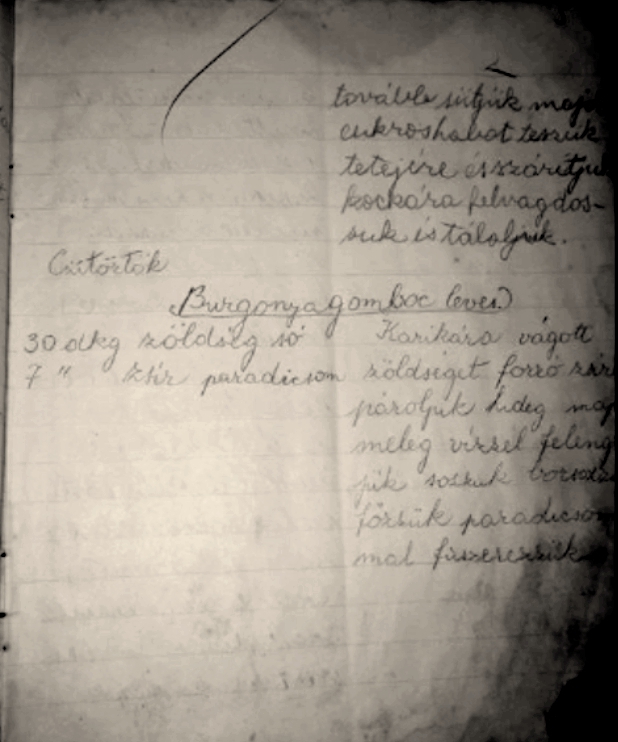 tovább sütjük majd
cukroshabot teszük
tetejére és szárítju
kockára felvagdos-
suk és tálaljuk.
Csütörtök
(Burgonyagomboc leves)
30 dkg zöldség só
7 " zsír paradicsom
Karikára vágott
zöldséget forró zsír
pároljuk hideg maj
meleg vízzel feleng
jük sózzuk borsoz
főzzük paradicsom
mal fűszerezzük